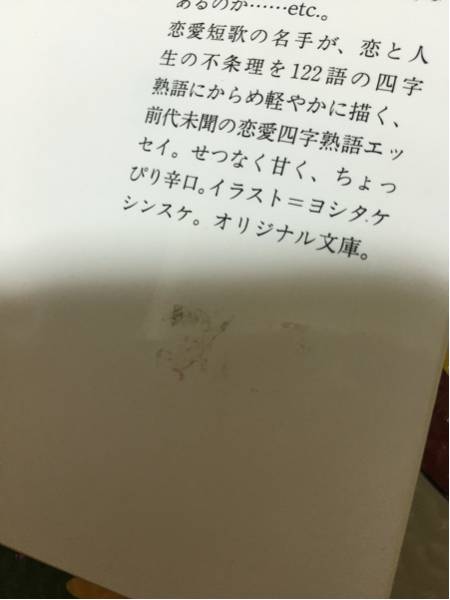 あるのか……etc.。
恋愛短歌の名手が、恋と人
生の不条理を122語の四字
熟語にからめ軽やかに描く、
前代未聞の恋愛四字熟語エッ
セイ。せつなく甘く、ちょっ
ぴり辛口。イラスト＝ヨシタケ
シンスケ。オリジナル文庫。